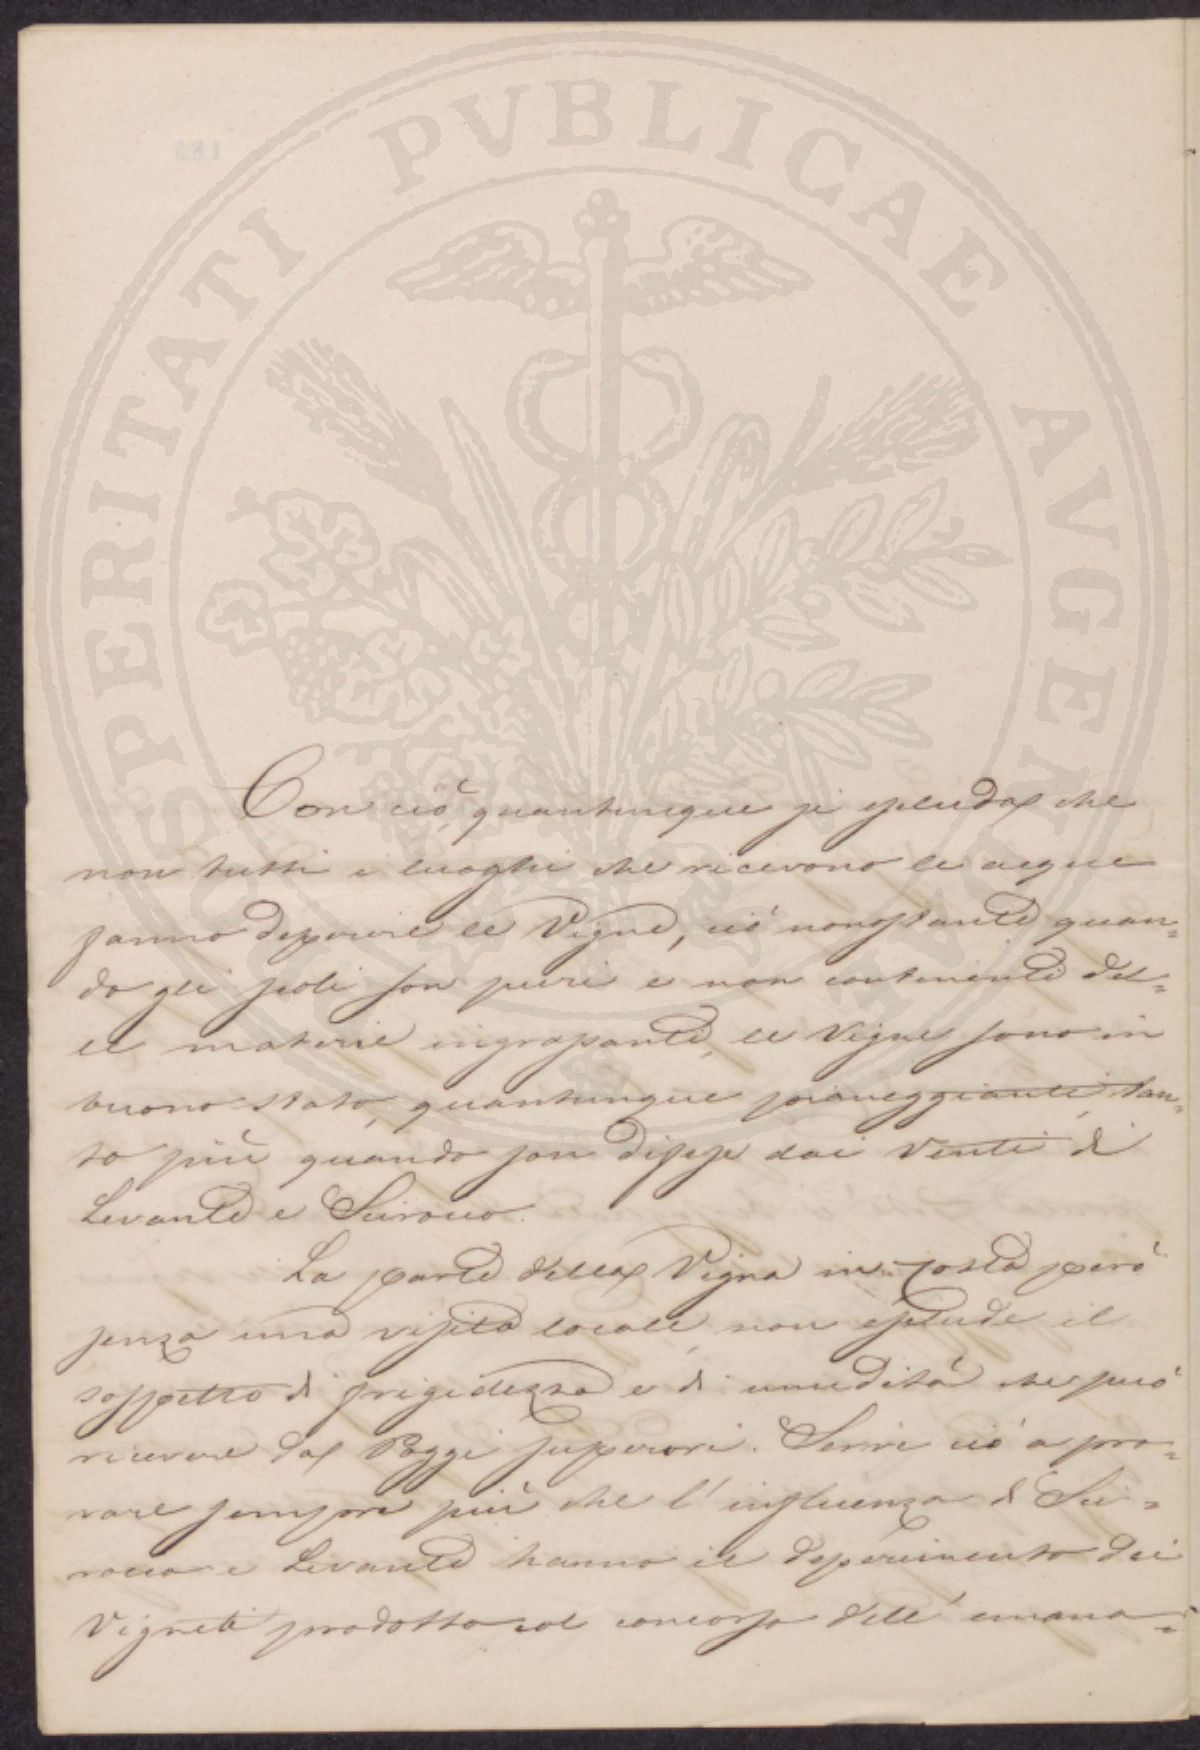 PROSPERITATI PVBLICAE AVGENDAE
Con ciò, quantunque si escluda che
non tutti i luoghi che ricevono le acque
fanno deperire le Vigne, ciò nonostante quan=
do gli scoli son puri e non contenenti del=
le materie ingrassanti, le Vigne sono in
buono stato, quantunque pianeggianti, tan=
to più quando son difese dai Venti di
Levante e Scirocco.
La parte della Vigna in costa però
senza una visita locale, non esclude il
sospetto di frigidezza e di umidità che può
ricevere dai Poggi superiori. Servirà ciò a pro=
vare sempre più che l'influenza di Sci=
rocco e Levante hanno il deperimento dei
Vigneti prodotto col concorso dell'emana=